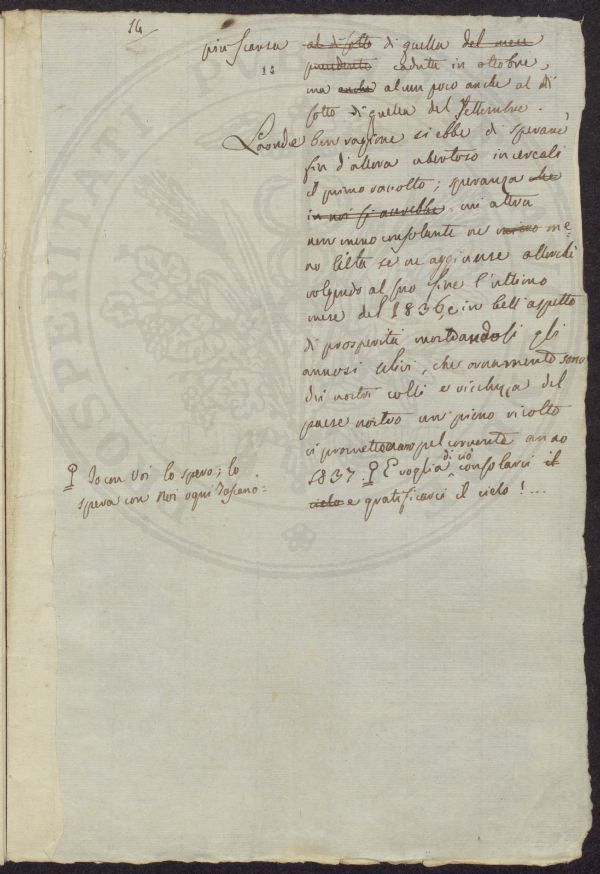 14
più scarsa al di sotto di quella del mese
12
precedente caduta in ottobre,
ma anche alcun poco anche al di
sotto di quella del Settembre.
Laonde ben ragione si ebbe di sperare
fin d'allora ubertoso in cereali
il primo racolto; speranza che
in noi si accrebbe. Un'altra
nemmeno consolante ne me=
no lieta se ne aggiunse allorchè
volgendo al suo fine l'ultimo
mese del 1836, e in bell'aspetto
di prosperità mostrandosi gli
annosi ulivi, che ornamento sono
dei nostri colli e ricchezza del
paese nostro un pieno ricolto
ci promettevano pel corrente anno
1837. E voglia di ciò consolarci il
cielo e gratificarci il cielo!...
Io con Voi lo spero; lo
spera con Noi ogni Toscano=
PROSPERITATI PUBLICAE